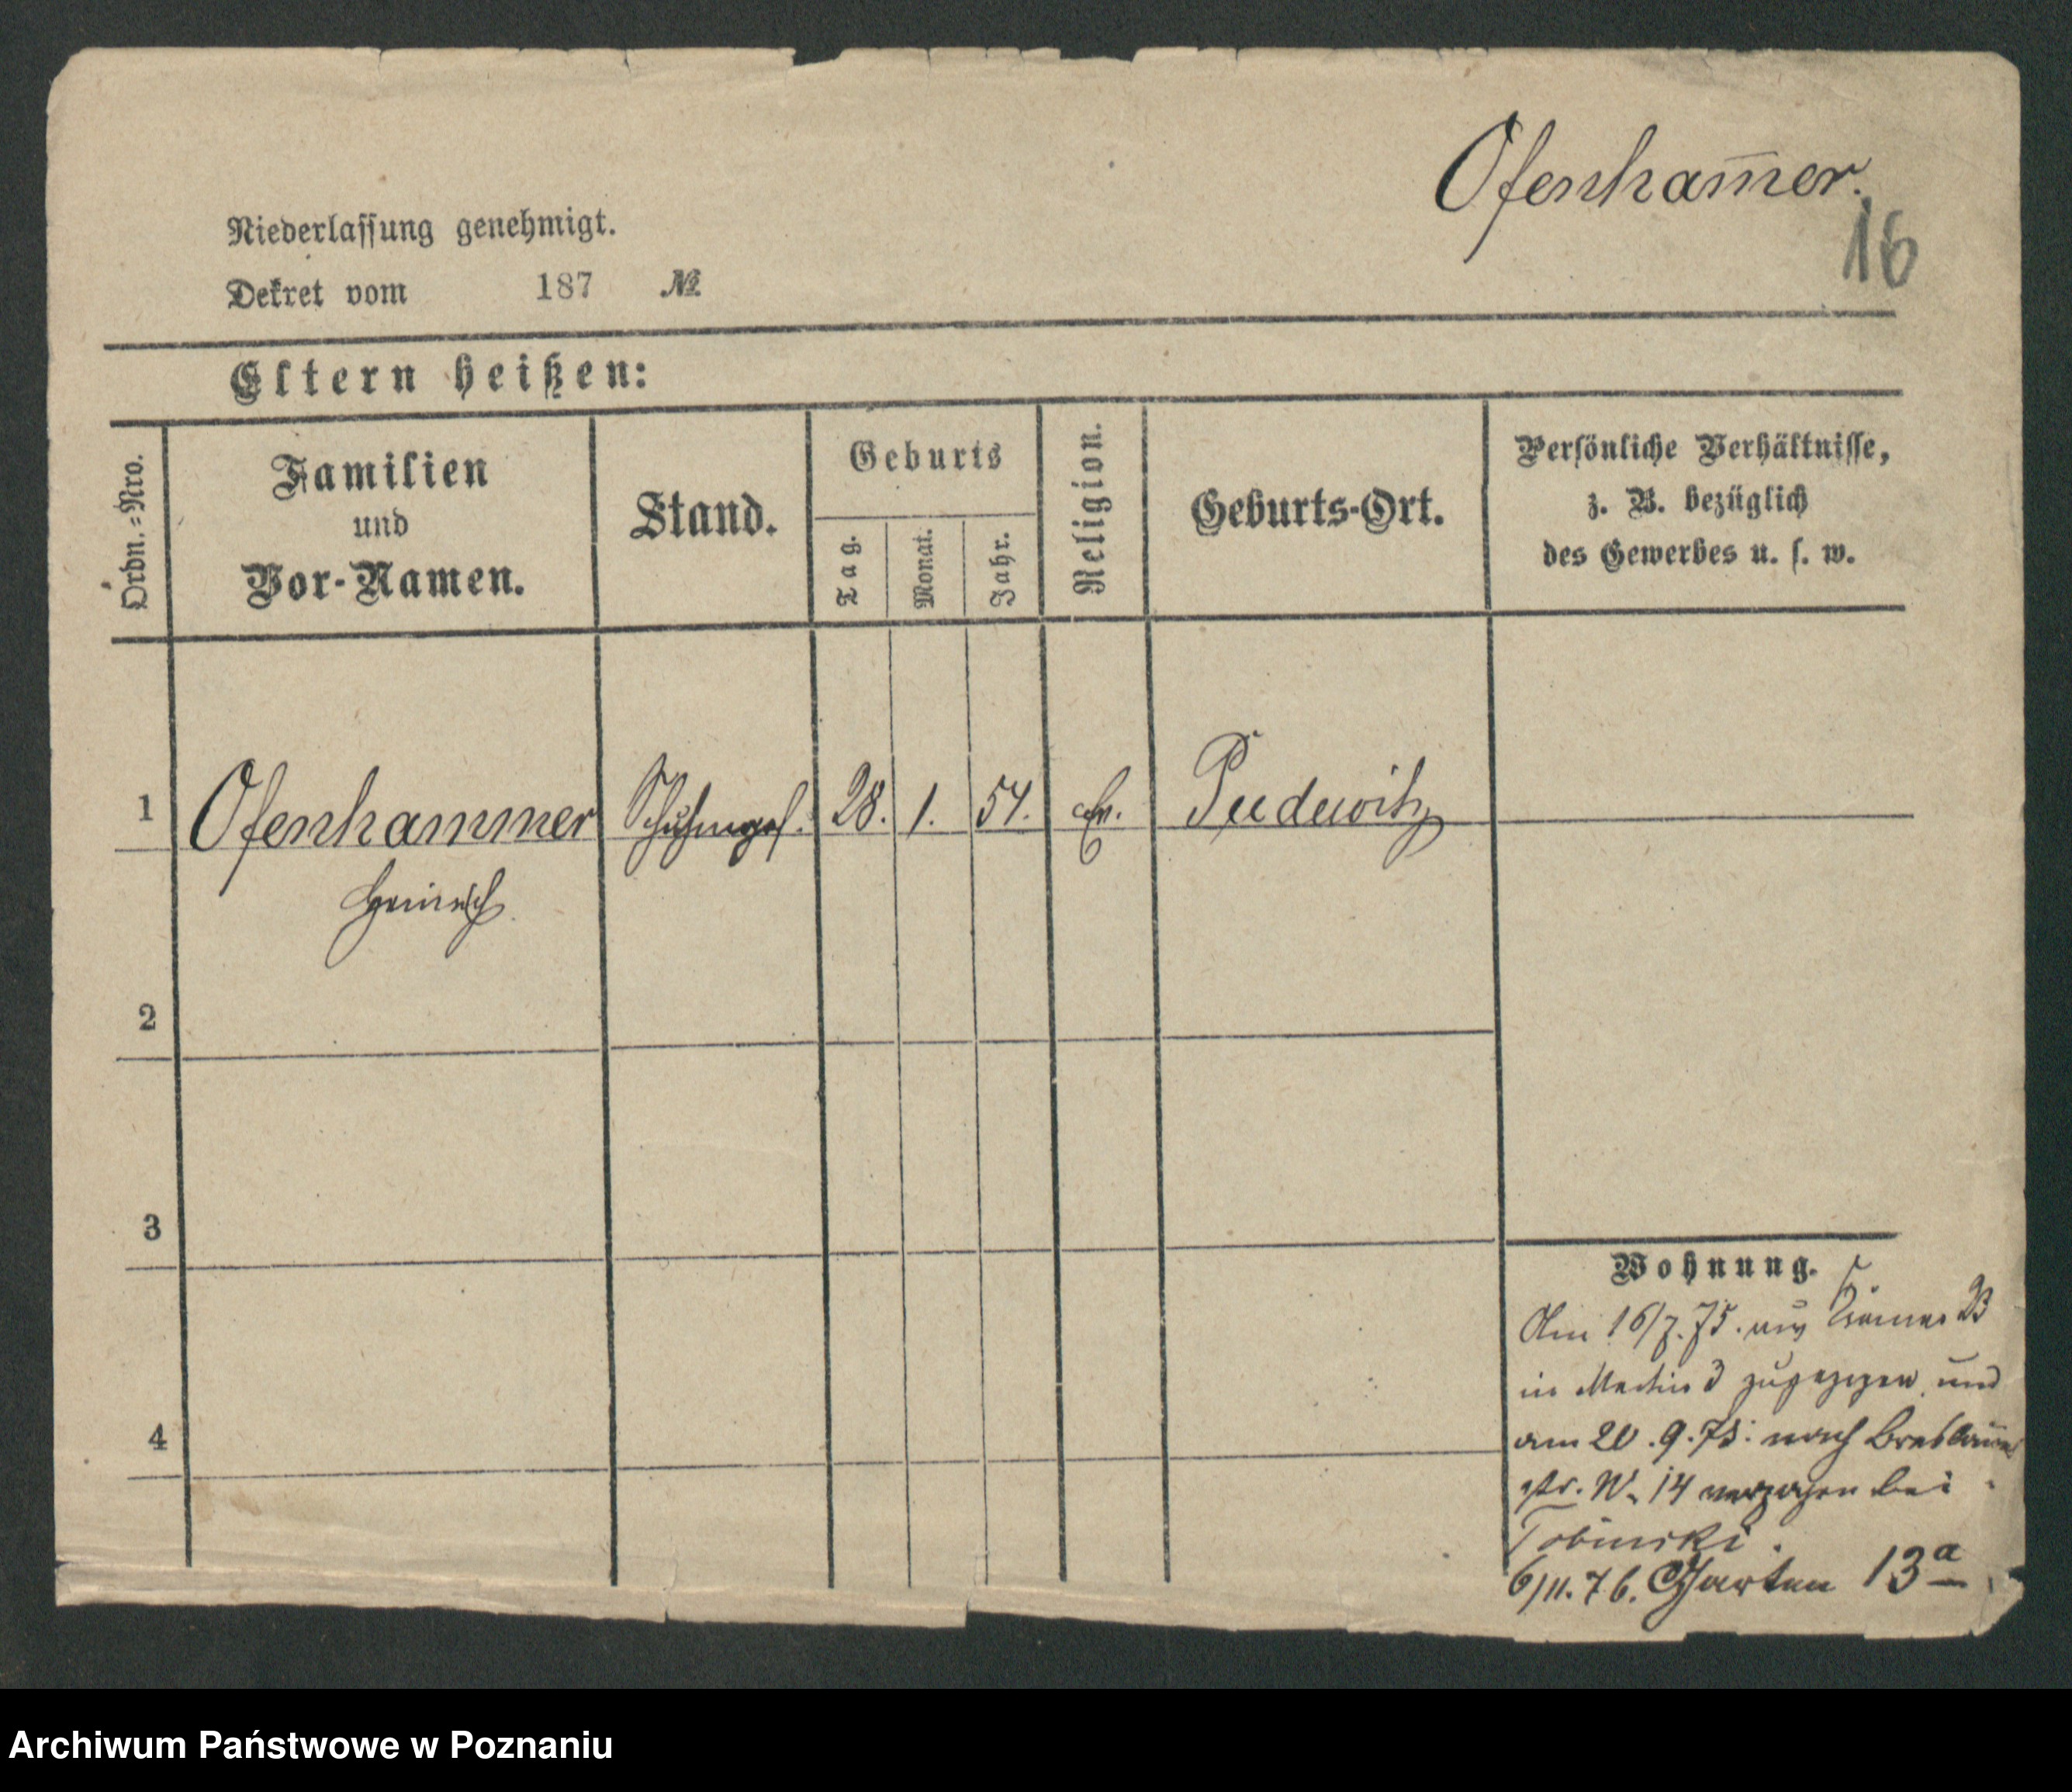 Ofenham̅er.
16
Niederlassung genehmigt.
Dekret vom 187 №
Eltern heißen:
Ordn.=Nro.
Familien
und
Vor-Namen.
Stand.
Geburts
Tag.
Monat.
Jahr.
Religion.
Geburts-Ort.
Persönliche Verhältnisse,
z. B. bezüglich
des Gewerbes u. s. w.
1 Ofenhammer Schuhmges. 28. 1. 54. Ev. Pudewitz
Heinrich
2
3
4
Wohnung.
Am 16/7. 75. aus
in Martin 3 zugezogen und
am 20. 9. 75. nach Breslauer
str. N. 14 verzogen bei
Tobinski.
6/11. 76. Garten 13a